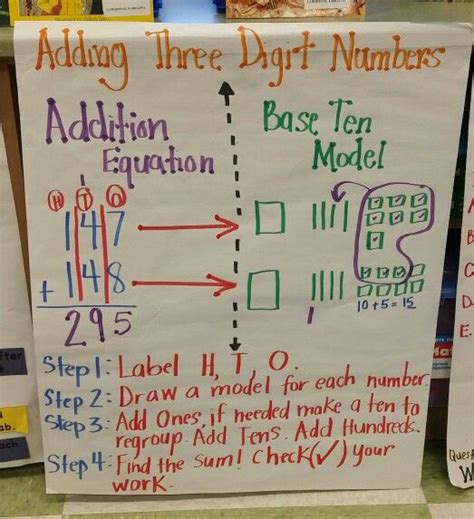 Adding Three Digit Numbers
Addition
Equation
Base Ten
Model
1
H T O
147
+ 148
295
10+5=15
Step 1: Label H, T, O.
Step 2: Draw a model for each number.
Step 3: Add Ones, if needed make a ten to
regroup. Add Tens. Add Hundreds.
Step 4: Find the sum! Check (✓) your
work.
B
C
D-
E.
Mat
after
ab.
each
Ques
W